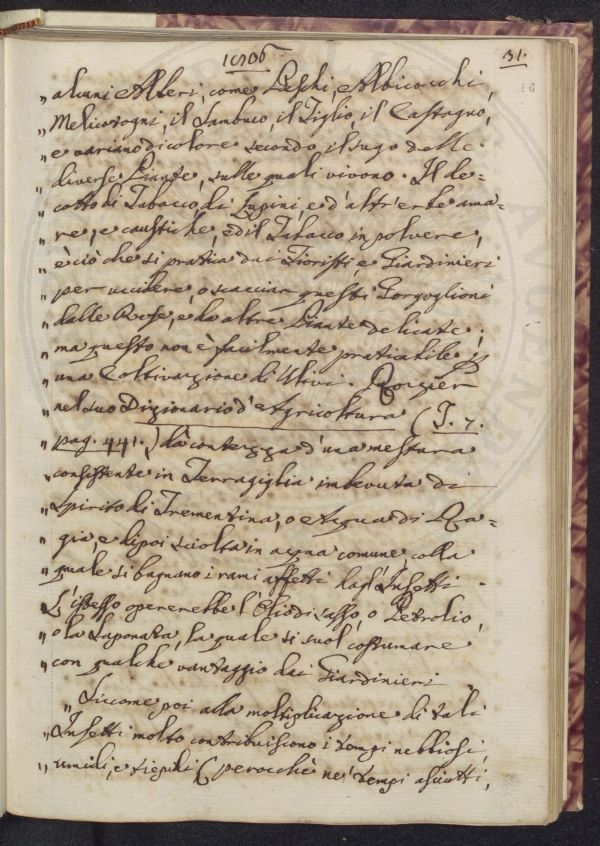 1806. 31.
46
„ alcuni Alberi, come Peschi, Albicocchi,
„ Melicotogni, il Sambuco, il Tiglio, il Castagno,
„ e variano di colore secondo il sugo delle
„ diverse Piante, sulle quali vivono. Il de=
„ cotto di Tabacco, di Lupini, e d'altr'erbe ama=
„ re, e caustiche, ed il Tabacco in polvere,
„ è ciò che si pratica dai Fioristi, e Giardinieri
„ per uccidere, o scacciar questi Gorgoglioni
„ dalle Rose, e da altre Piante delicate;
„ ma questo non è facilmente praticabile p
„ una Coltivazione di Ulivi. Rozier
„ nel suo Dizionario d'Agricoltura (T. 7.
„ pag. 441.) dà contezza d'una mestura
„ consistente in Terragiglia imbevuta di
„ Spirito di Trementina, o Acqua di Ra=
„ gia, e dipoi sciolta in acqua comune colla
„ quale si bagnano i rami affetti dagl'Insetti.
„ L'istesso opererebbe l'Olio di sasso, o Petrolio,
„ o la Saponata, la quale si suol costumare
„ con qualche vantaggio dai Giardinieri
„ Siccome poi alla moltiplicazione di tali
„ Insetti molto contribuiscono i tempi nebbiosi,
„ umidi, e tiepidi (perocchè ne' tempi asciutti,